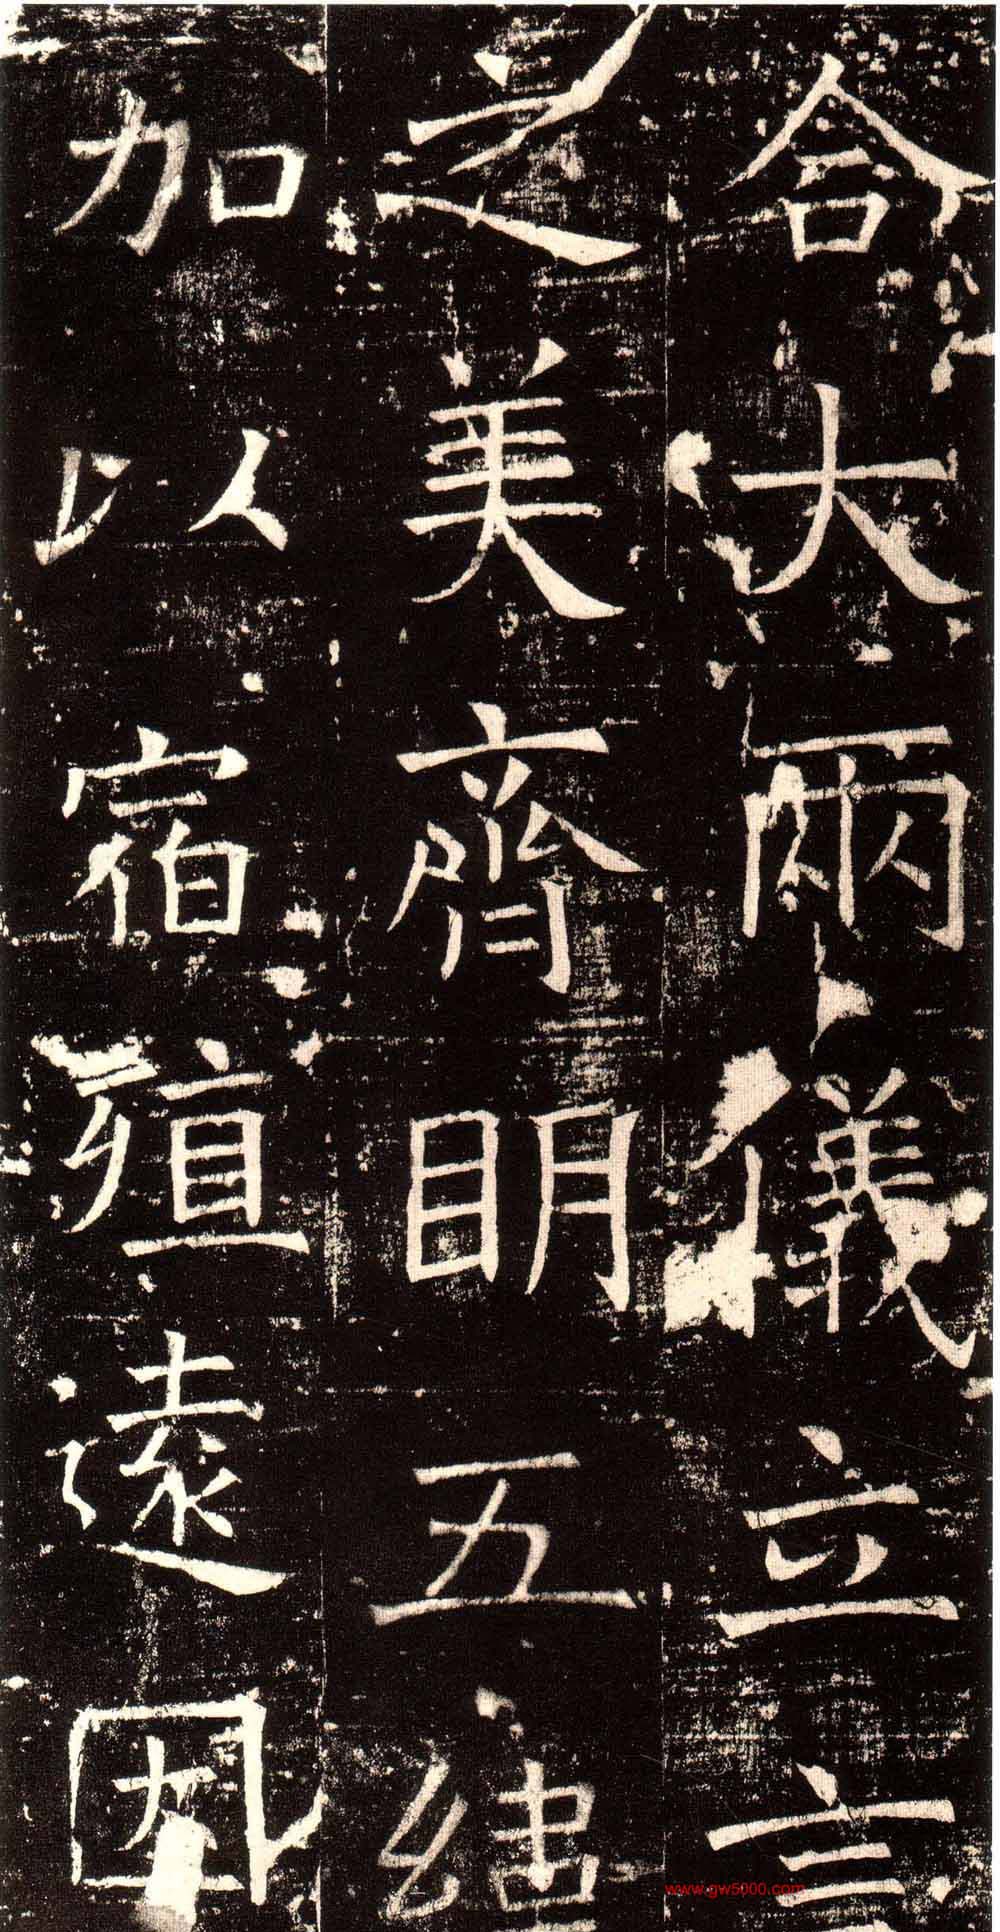 合大兩儀立言
之美齊明五緯
加以宿殖遠因
www.gw5000.com